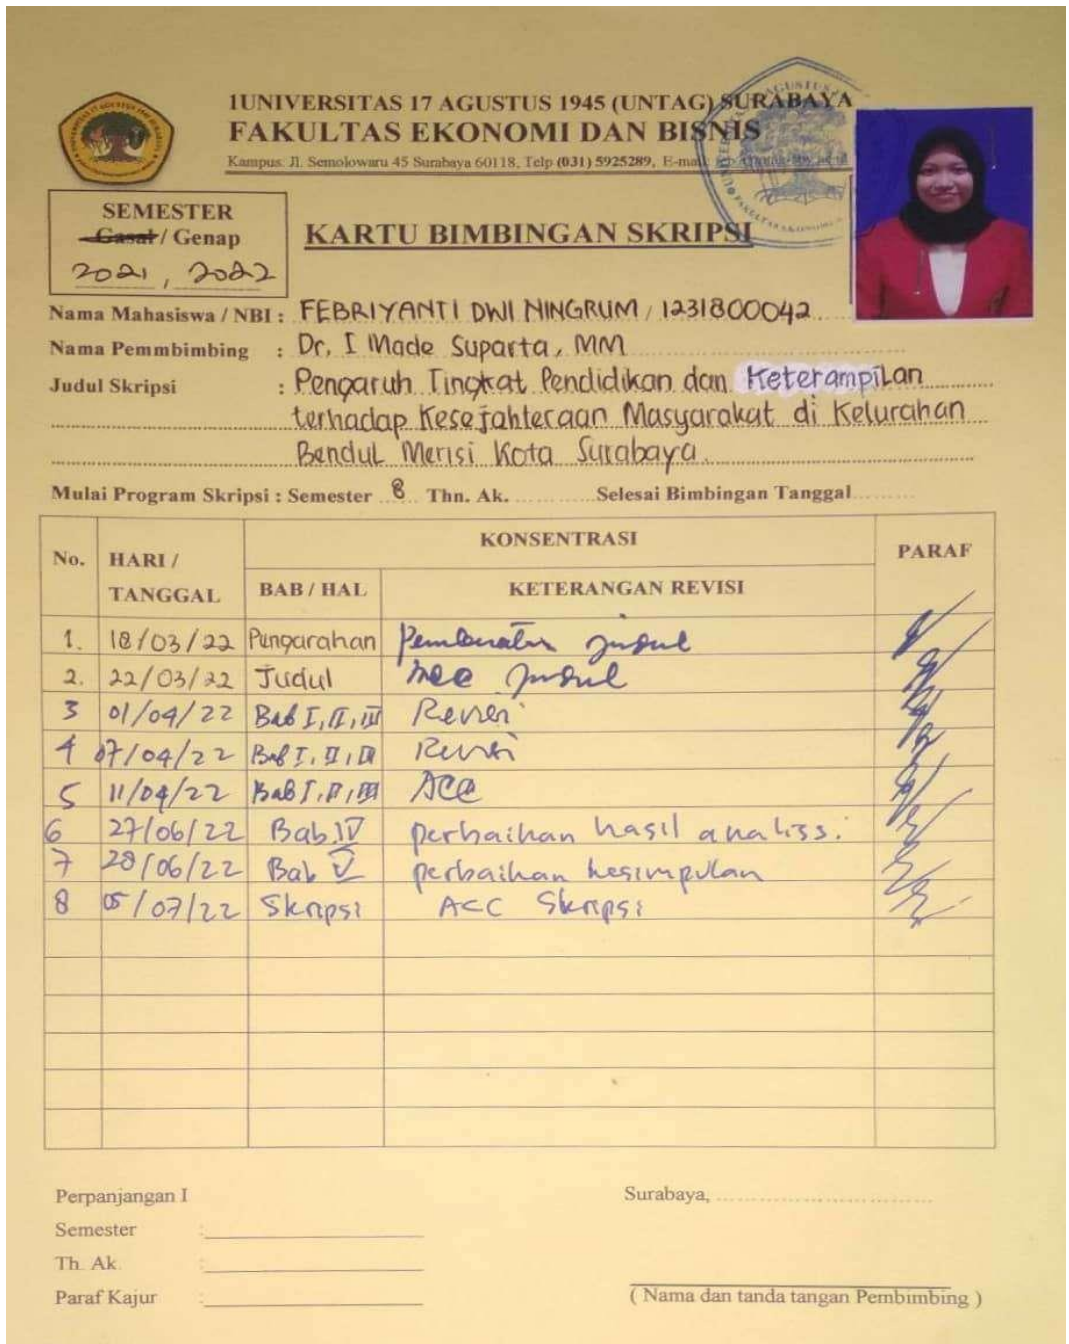 1UNIVERSITAS 17 AGUSTUS 1945 (UNTAG) SURABAYA
FAKULTAS EKONOMI DAN BISNIS
Kampus. Jl. Semolowaru 45 Surabaya 60118, Telp (031) 5925289,
SEMESTER
Gasal / Genap
2021, 2022
KARTU BIMBINGAN SKRIPSI
Nama Mahasiswa / NBI : FEBRIYANTI DWI NINGRUM / 1231800042
Nama Pemmbimbing : Dr, I Made Suparta, MM
Judul Skripsi : Pengaruh Tingkat Pendidikan dan Keterampilan
terhadap Kesejahteraan Masyarakat di Kelurahan
Bendul Merisi Kota Surabaya.
Mulai Program Skripsi : Semester 8 Thn. Ak. ............ Selesai Bimbingan Tanggal .........
No. HARI / TANGGAL KONSENTRASI PARAF
BAB / HAL KETERANGAN REVISI
1. 18/03/22 Pengarahan judul
2. 22/03/22 Judul judul
3 01/04/22 Bab I, II, III Revisi
4 07/04/22 Bab I, II, III Revisi
5 11/04/22 Bab I, II, III ACC
6 27/06/22 Bab IV perbaikan hasil analiss.
7 28/06/22 Bab V perbaikan kesimpulan
8 05/07/22 Skripsi ACC Skripsi
Perpanjangan I Surabaya, ............................
Semester :
Th. Ak. :
Paraf Kajur :
( Nama dan tanda tangan Pembimbing )